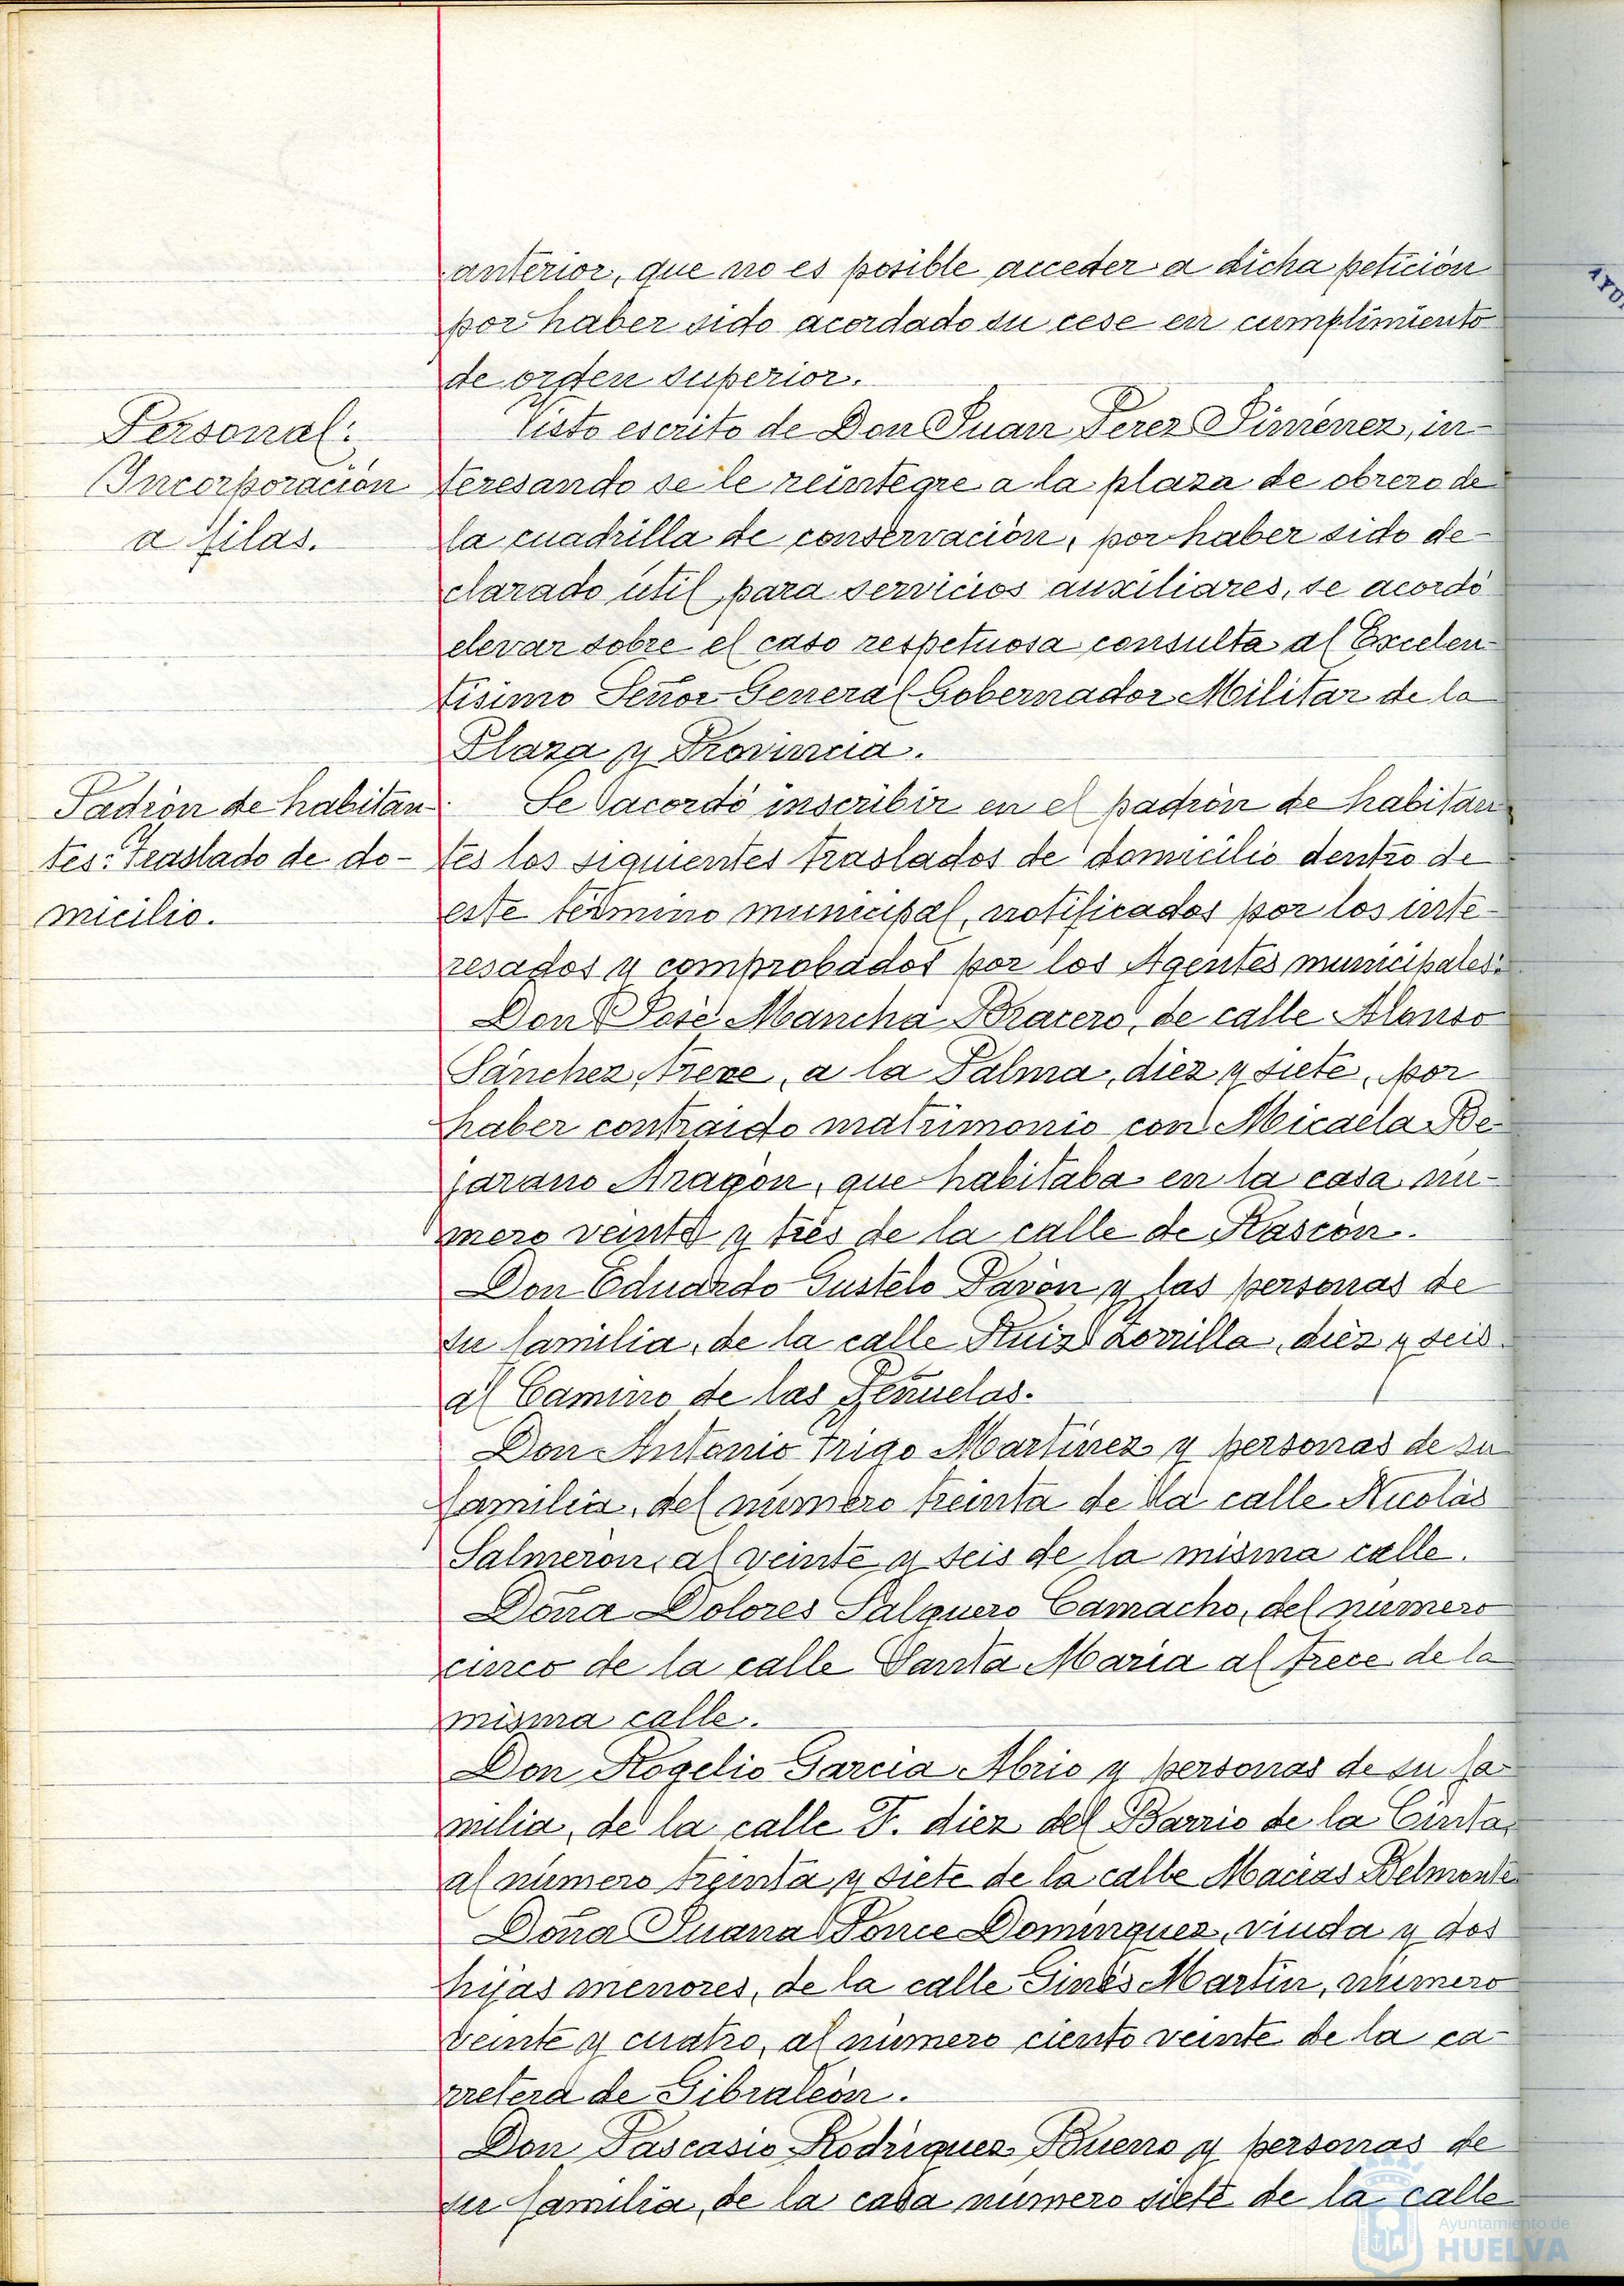 anterior, que no es posible acceder a dicha petición
por haber sido acordado su cese en cumplimiento
de orden superior.
Personal:
Incorporación
a filas.
Visto escrito de Don Juan Perez Jimenez, in-
teresando se le reintegre a la plaza de obrero de
la cuadrilla de conservación, por haber sido de-
clarado útil para servicios auxiliares, se acordó
elevar sobre el caso respetuosa consulta al Excelen-
tisimo Señor General Gobernador Militar de la
Plaza y Provincia.
Padrón de habitan-
tes: Traslado de do-
micilio.
Se acordó inscribir en el padrón de habitan
tes los siguientes traslados de domicilio dentro de
este término municipal, notificados por los inte-
resados y comprobados por los Agentes municipales:
Don José Mancha Bracero, de calle Alonso
Sánchez, trece, a la Palma, diez y siete, por
haber contraido matrimonio con Micaela Be-
jarano Aragón, que habitaba en la casa nú-
mero veinte y tres de la calle de Rascón.
Don Eduardo Gustelo Pavón y las personas de
su familia, de la calle Ruiz Zorrilla, diez y seis
al Camino de las Peñuelas.
Don Antonio Trigo Martínez y personas de su
familia, del número treinta de la calle Nicolás
Salmeron, al veinte y seis de la misma calle.
Doña Dolores Salguero Camacho, del número
cinco de la calle Santa Maria al trece de la
misma calle.
Don Rogelio Garcia Abrio y personas de su fa-
milia, de la calle F. diez del Barrio de la Cinta,
al número treinta y siete de la calle Macias Belmonte
Doña Juana Ponce Dominguez, viuda y dos
hijas menores, de la calle Ginés Martín, número
veinte y cuatro, al número ciento veinte de la ca-
rretera de Gibraleón.
Don Pascasio Rodriguez Bueno y personas de
su familia, de la casa número siete de la calle
Ayuntamiento de
HUELVA